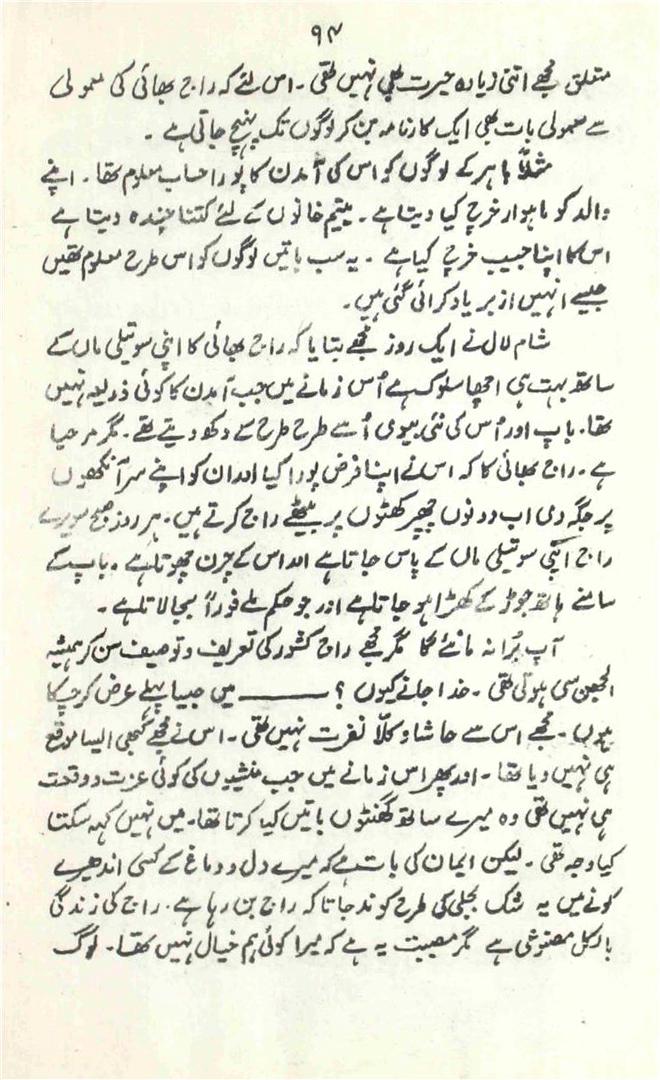 ۹۴
متعلق مجھے اتنی زیادہ حیرت بھی نہیں تھی۔ اس لئے کہ راج بھائی کی معمولی
سے معمولی بات بھی ایک کارنامہ بن کر لوگوں تک پہنچ جاتی ہے۔
مثلاً باہر کے لوگوں کو اس کی آمدن کا پورا حساب معلوم تھا۔ اپنے
والد کو ماہوار خرچ کیا دیتا ہے۔ یتیم خانوں کے لئے کتنا چندہ دیتا ہے
اس کا اپنا جیب خرچ کیا ہے۔ یہ سب باتیں لوگوں کو اس طرح معلوم تھیں
جیسے انہیں ازبر یاد کرائی گئی ہیں۔
شام لال نے ایک روز مجھے بتایا کہ راج بھائی کا اپنی سوتیلی ماں کے
ساتھ بہت ہی اچھا سلوک ہے اُس زمانے میں جب آمدن کا کوئی ذریعہ نہیں
تھا۔ باپ اور اُس کی نئی بیوی اُسے طرح طرح سے دکھ دیتے تھے۔ مگر مرحبا
ہے۔ راج بھائی کا کہ اس نے اپنا فرض پورا کیا اور ان کو اپنے سر آنکھوں
پر جگہ دی اب دونوں چھپر کھٹوں پر بیٹھے راج کرتے ہیں۔ ہر روز صبح سویرے
راج اپنی سوتیلی ماں کے پاس جاتا ہے اور اس کے چرن چھوتا ہے۔ باپ کے
سامنے ہاتھ جوڑ کے کھڑا ہو جاتا ہے اور جو حکم ملے فوراً بجا لاتا ہے۔
آپ بُرا نہ مانئے گا مگر مجھے راج کشور کی تعریف و توصیف سن کر ہمیشہ
الجھن سی ہوتی تھی۔ خدا جانے کیوں؟ ——— میں جیسا پہلے عرض کر چکا
ہوں۔ مجھے اس سے حاشا و کلّا نفرت نہیں تھی۔ اس نے مجھے کبھی ایسا موقع
ہی نہیں دیا تھا۔ اور پھر اس زمانے میں جب منشیوں کی کوئی عزت و وقعت
ہی نہیں تھی وہ میرے ساتھ گھنٹوں باتیں کیا کرتا تھا۔ میں نہیں کہہ سکتا
کیا وجہ تھی۔ لیکن ایمان کی بات ہے کہ میرے دل و دماغ کے کسی اندھیرے
کونے میں یہ شک بجلی کی طرح کوند جاتا کہ راج بن رہا ہے۔ راج کی زندگی
بالکل مصنوعی ہے مگر مصیبت یہ ہے کہ میرا کوئی ہم خیال نہیں تھا۔ لوگ